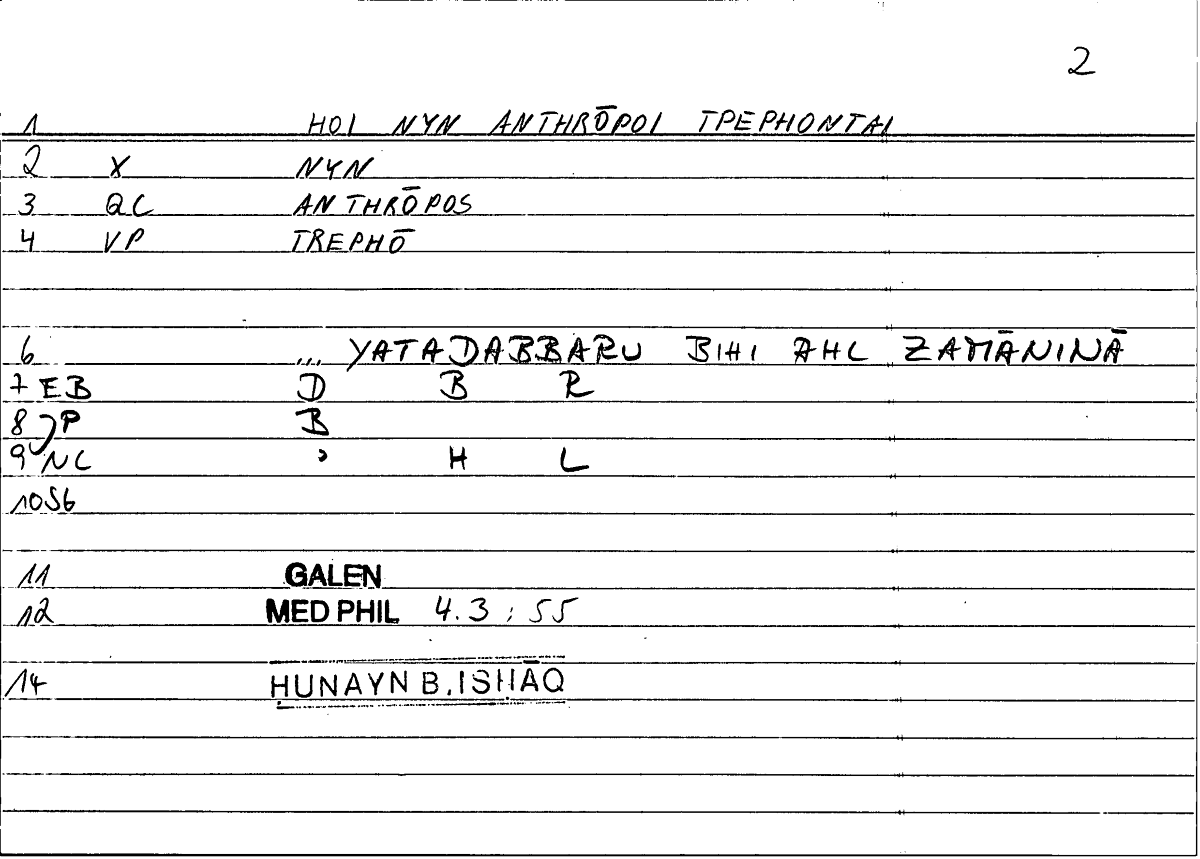 2
1 HOI NYN ANTHRŌPOI TPEPHONTAI
2 X NYN
3 QC ANTHRŌPOS
4 VP TREPHŌ
6 ,,,, YATADABBARU BIHI AHL ZAMĀNINĀ
7 EB D B R
8 JP B
9 NC ʾ H L
10 S6
11 GALEN
12 MED PHIL 4.3 ; 55
14 ḤUNAYN B. ISḤĀQ